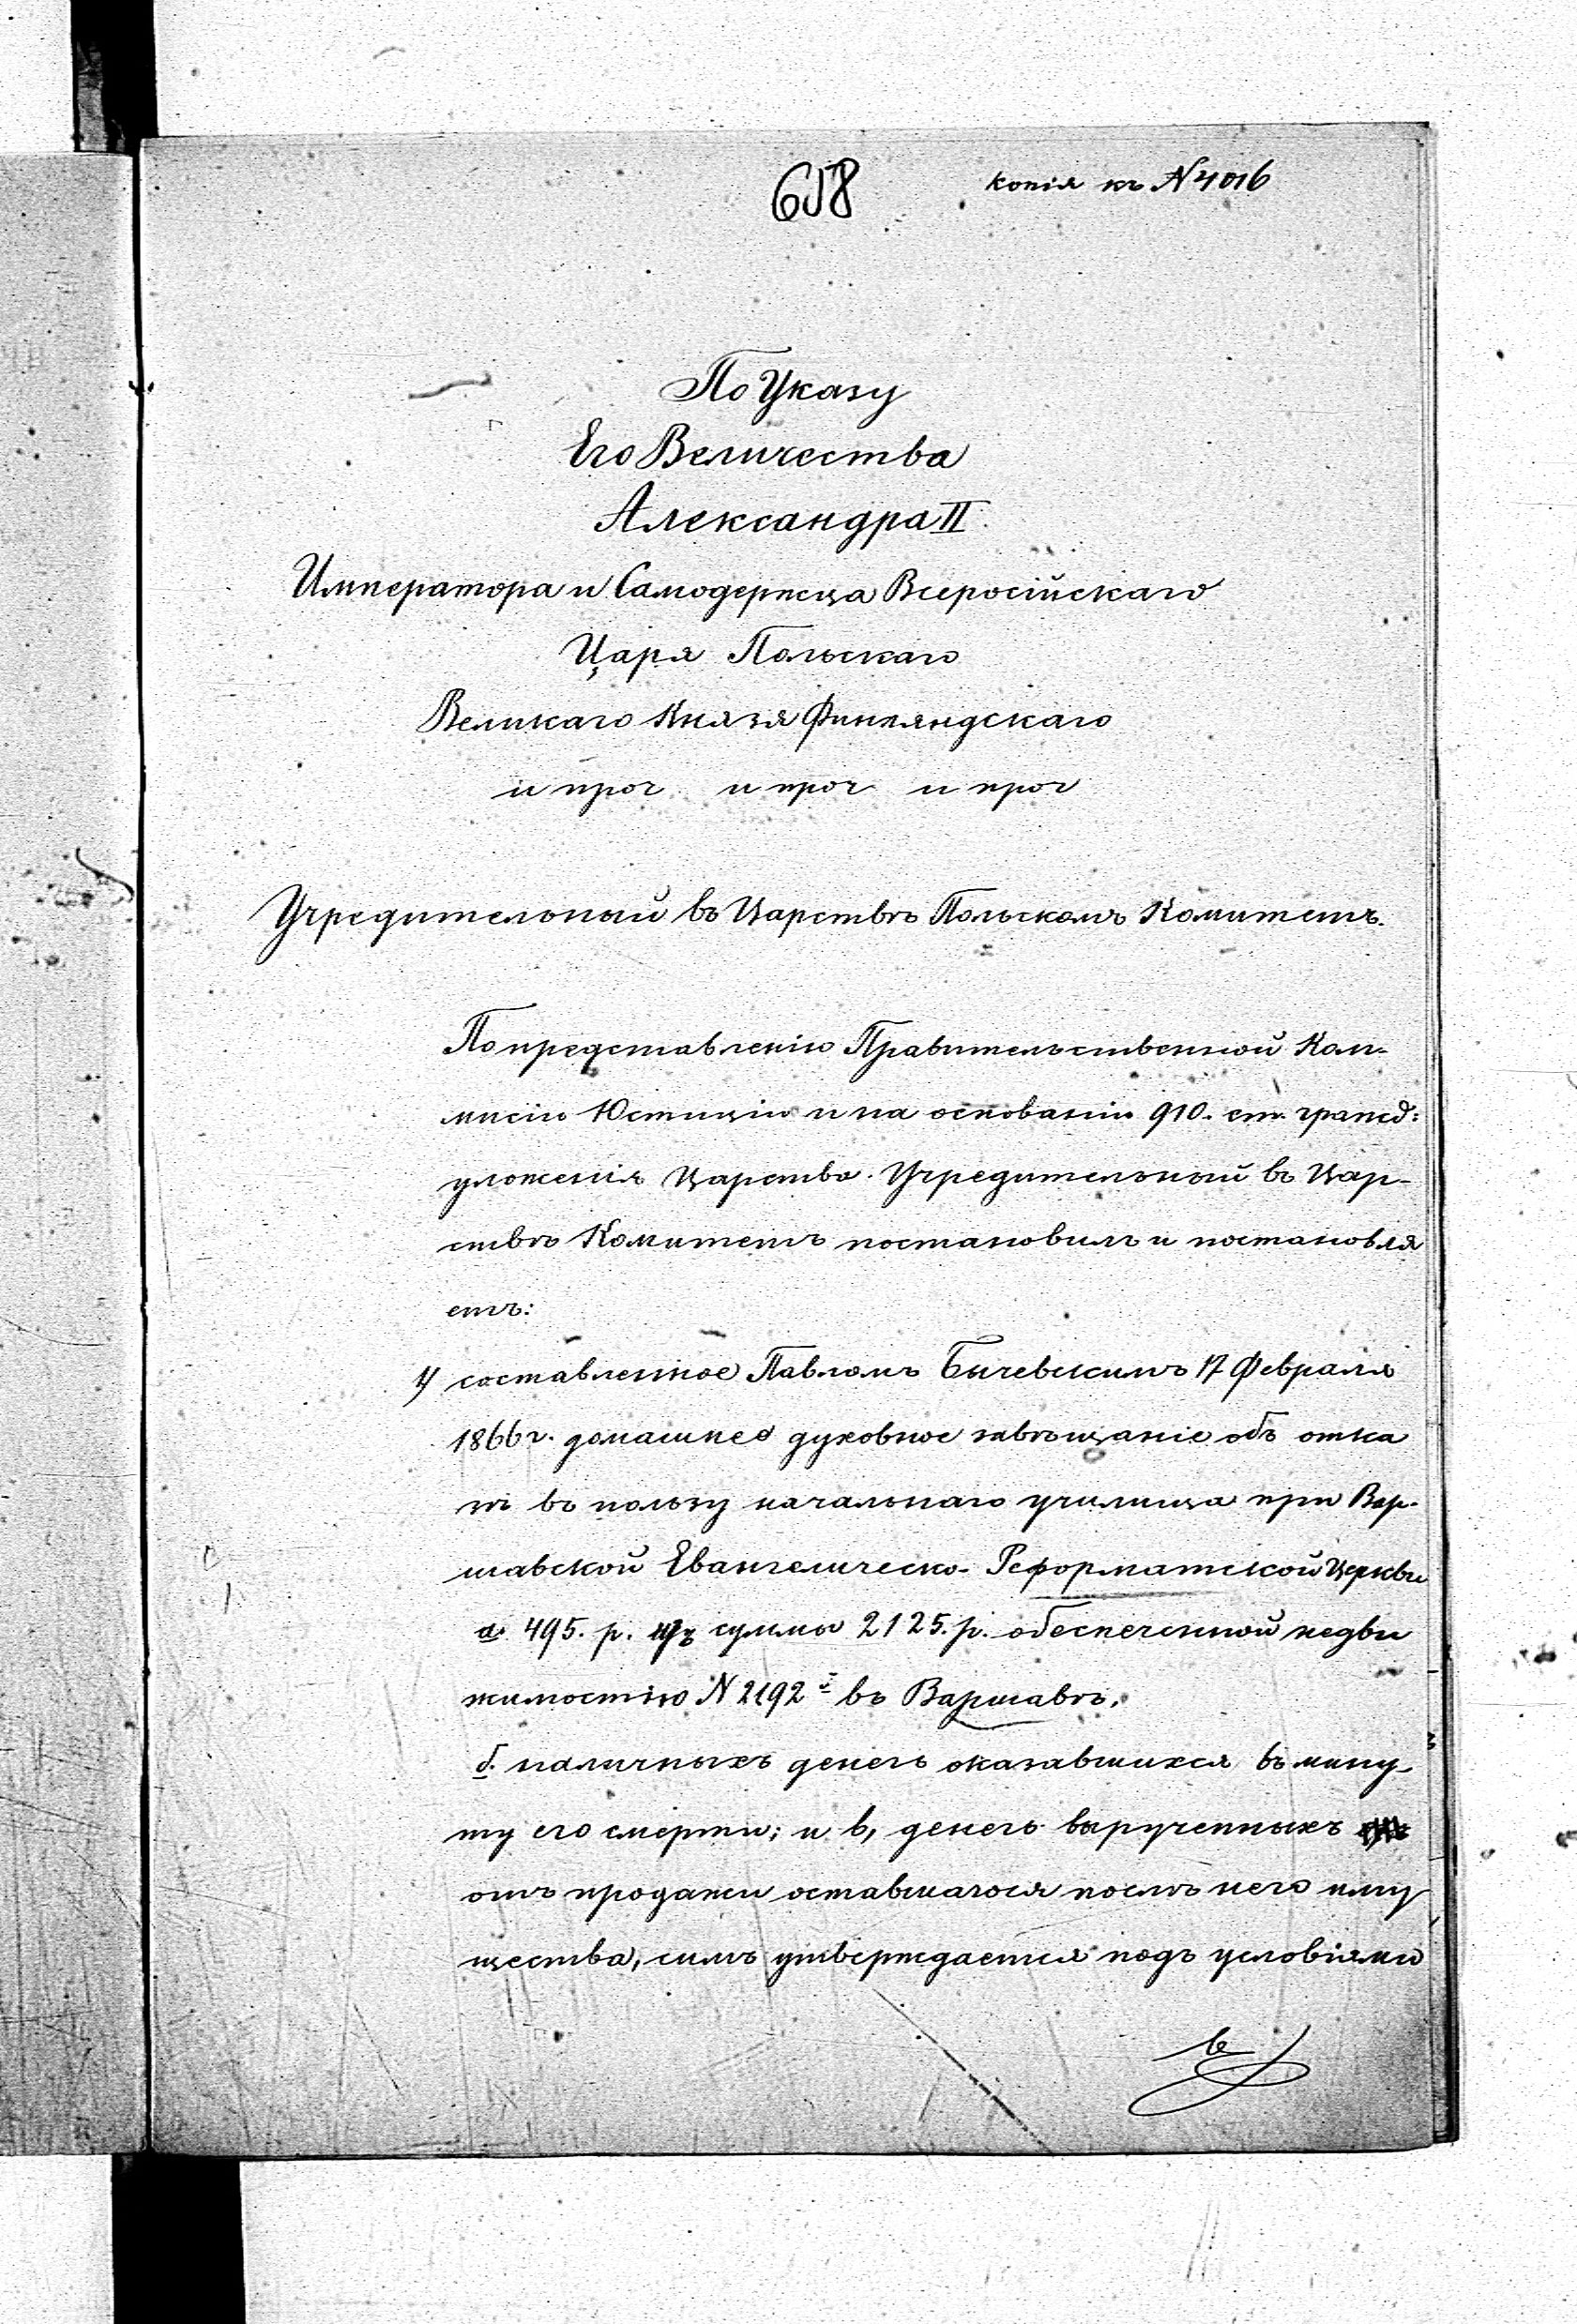 658
копія къ N 4016
По Указу
Его Величества
Александра II.
Императора и Самодержца Всеросійскаго
Царя Польскаго
Великаго Князя Финляндскаго
и проч и проч и проч
Учредительный въ Царствѣ Польскомъ Комитетъ.
По представленію Правительственной Ком-
мисіи Юстиціи и на основаніи 910. ст. гражд:
уложенія Царства. Учредительный въ Цар-
ствѣ Комитетъ постановилъ и постановля
етъ:
1) составленное Павломъ Бычевскимъ 17 Февраля
1866 г. домашнее духовное завѣщаніе объ отка
зѣ въ пользу начальнаго училища при Вар-
шавской Евангелическо-Реформатской Церкви
а. 495. р. изъ суммы 2125. р. обеспеченной недви
жимостію N 2192 въ Варшавѣ,
б. наличныхъ денегъ оказавшихся въ мину-
ту его смерти; и в, денегъ вырученныхъ
отъ продажи оставшагося послѣ него иму
щества, симъ утверждается подъ условіями